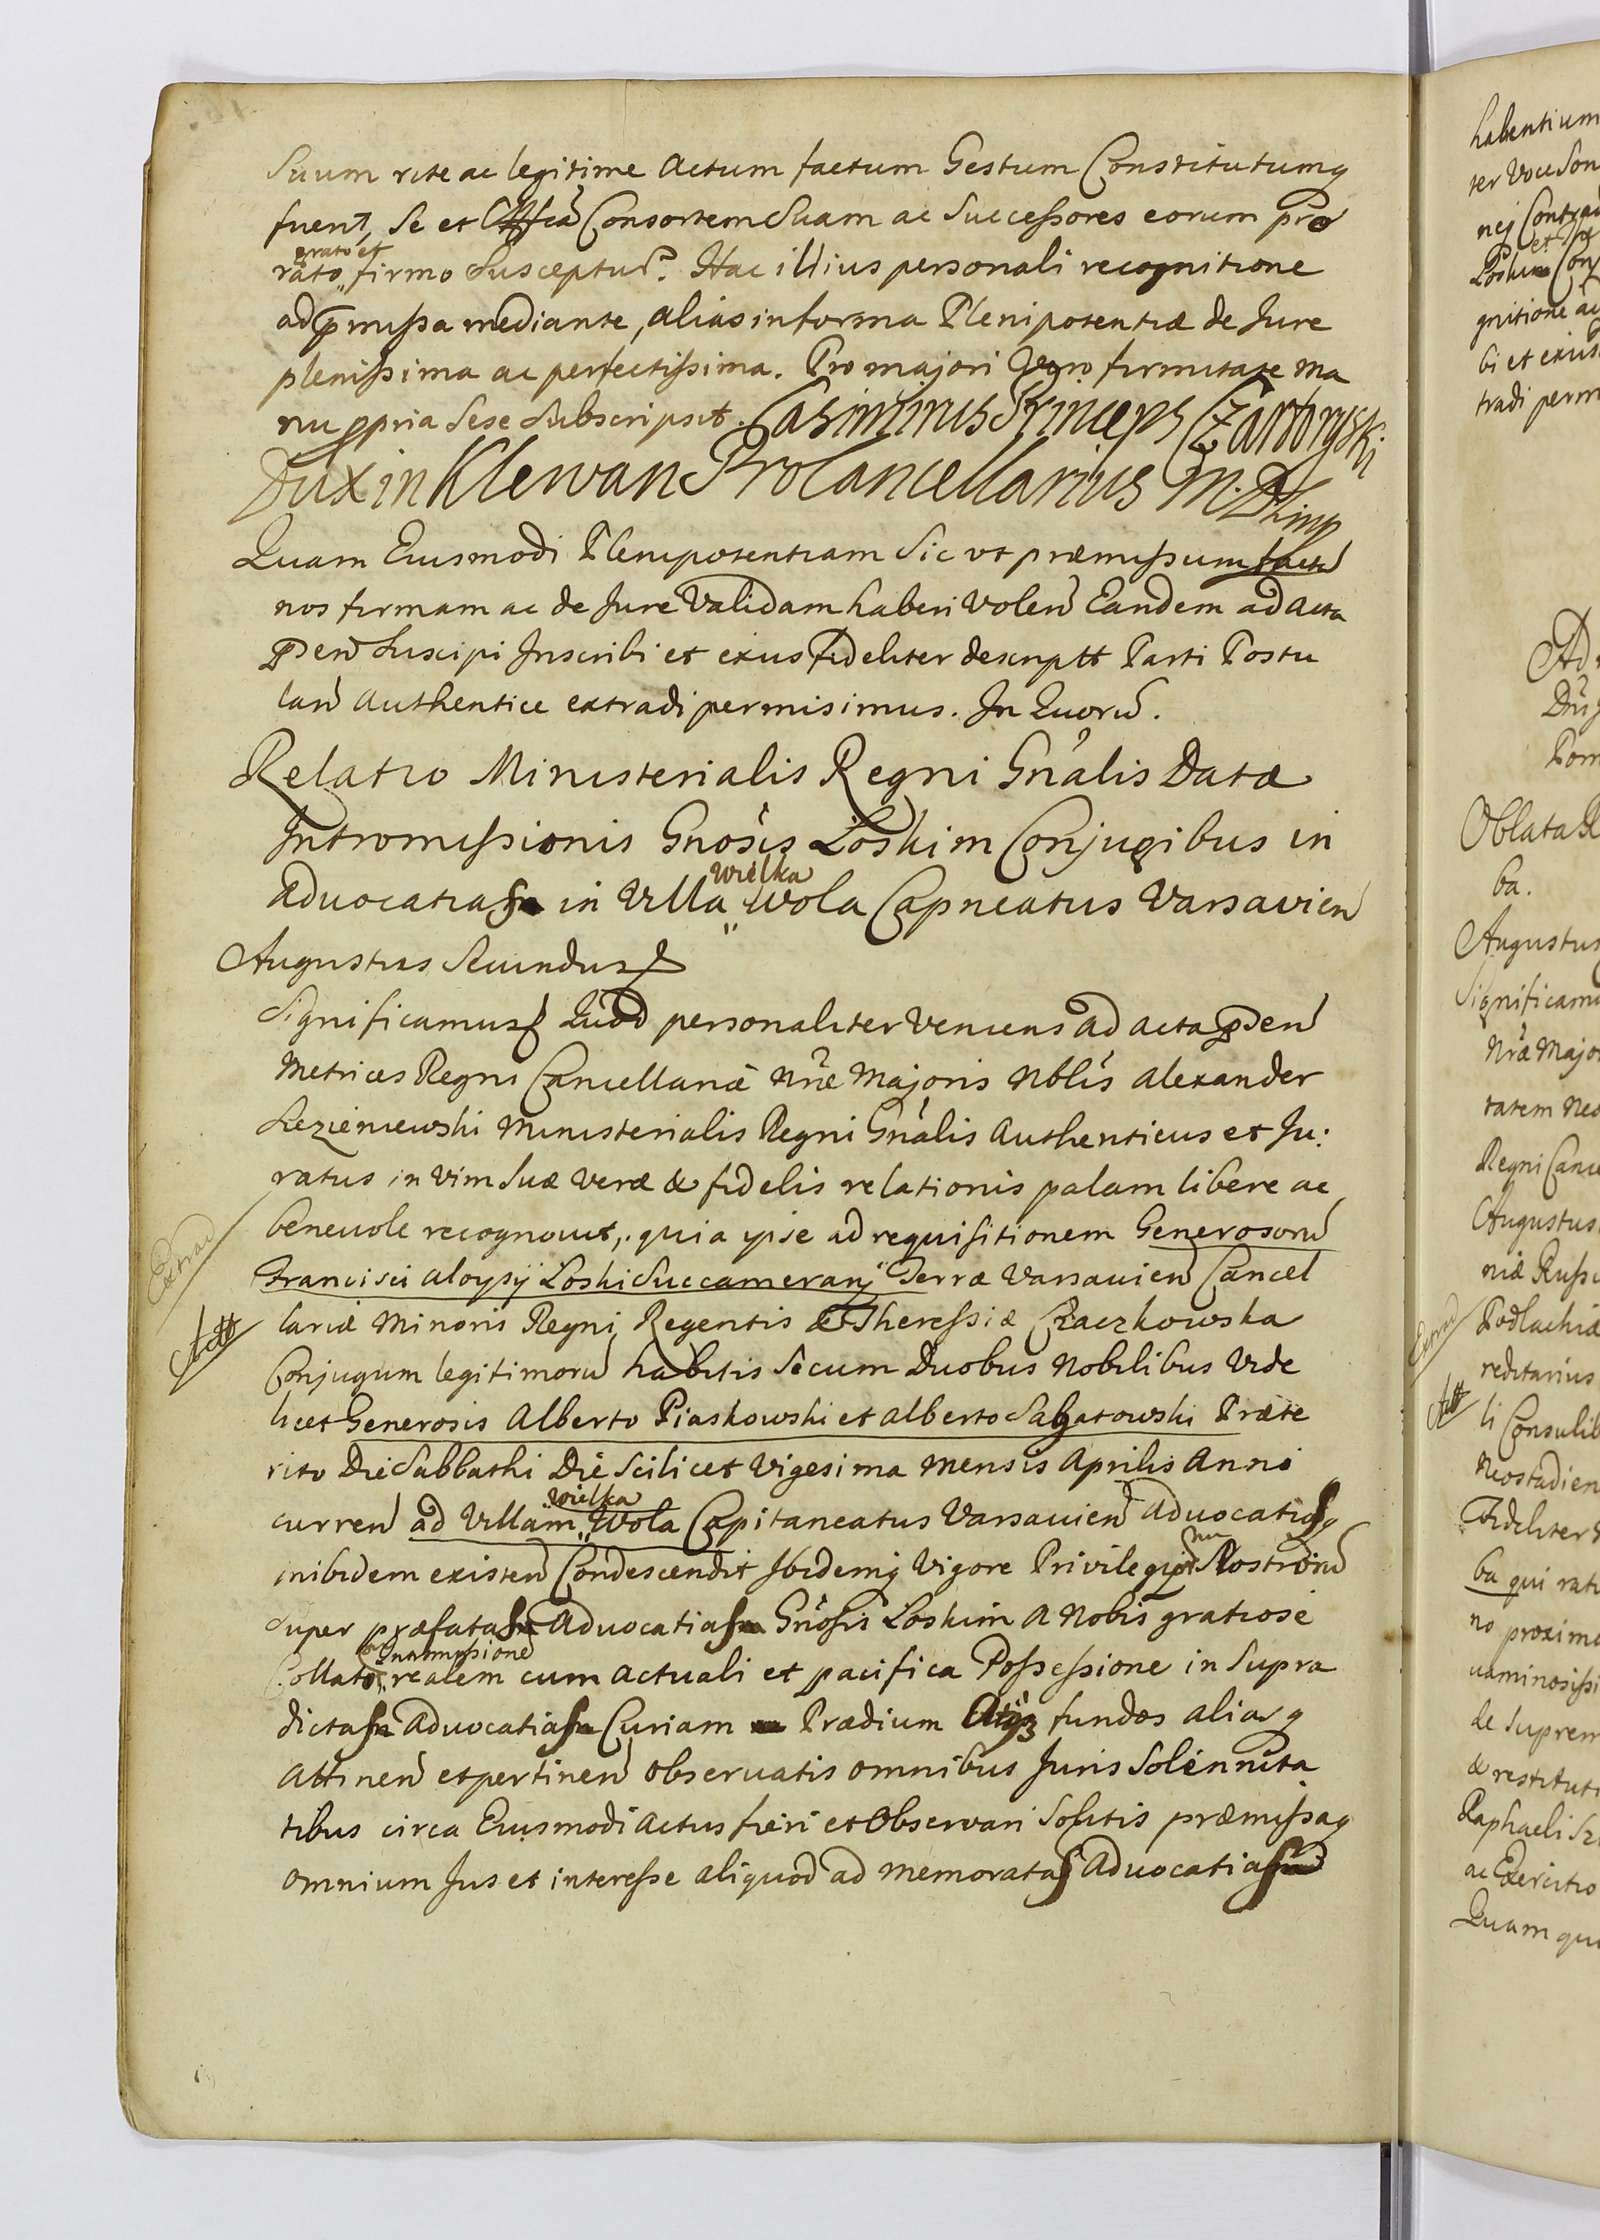 Suum rite ac legitime Actum factum Gestum Constitutumq
fuerit, Se et Consortem Suam ac Successores eorum pro
grato et
rato, firmo Suscepturū. Hac illius personali recognitione
ad p̄missa mediante, alias in forma Plenipotentiæ de Jure
plenissima ac perfectissima. Pro majori Vero firmitate Ma
nu ppria Sese Subscripsit. Casimirus Princeps Czartoryski
Dux in Klewan Procancellarius M. D. Litt
Quam Eiusmodi Plenipotentiam Sic ut præmissum
nos firmam ac de Jure Validam haberi Volen Eandem ad Acta
pñen Suscipi Inscribi et exius fideliter descriptt Parti Postu
lan Authentice extradi permisimus. In Quorū.
Relatio Ministerialis Regni Gnalis Datæ
Intromissionis Gnosis Loskim Conjugibus in
Wielka
Aduocatias in Villa Wola Capneatus Varsavien
Augustus Secundus
Significamus Quod personaliter Veniens ad acta pñen
Metrices Regni Cancellariæ Nræ Majoris Nblis Alexander
Lezieniewski Ministerialis Regni Gnalis Authenticus et Ju:
ratus in Vim Suæ Veræ & fidelis relationis palam libere ac
beneuole recognouit, quia ipse ad requisitionem Generosorū
Francisci Aloysij Loski Succamerarij Terræ Varsauien Cancel
lariæ Minoris Regni Regentis & Theressiæ Czaczkowska
Conjugum legitimorū habitis Secum Duobus Nobilibus Vide
licet Generosis Alberto Piaskowski et Alberto Præte
rito Die Sabbathi Die Scilicet Vigesima Mensis Aprilis Anni
Wielka
curren ad Villam Wola Capitaneatus Varsauien Aduocatiasq
inibidem existen Condescendit Ibidemq Vigore Privilegij
Super præfatas Aduocatias Gnosis Loskim A Nobis gratiose
Intromissione
Collato, realem cum actuali et pacifica Possessione in Supra
dictas Aduocatias Curiam Prædium fundos aliasq
Attinen et pertinen observatis omnibus Juris Solennita
tibus circa Eiusmodi Actus fieri et Observari Solitis præmissaq
omnium Jus et interesse aliquod ad memoratas Aduocatias
Extrad
Actt
habentium
ter Voce Son
nej Contrad
gnitione ac
bi et exius
tradi perm
Ad
Oblata
ba.
Augustus
Significamu
Nræ Majo
tatem Neo
Regni Canc
Augustus
niæ Russi
Podlachiæ
reditarius
li Consulib
Neostadien
Fideliter
ba qui rati
no proximo
uaminosissi
de Suprem
& restituti
Raphaeli
ac Exercitio
Quam qui